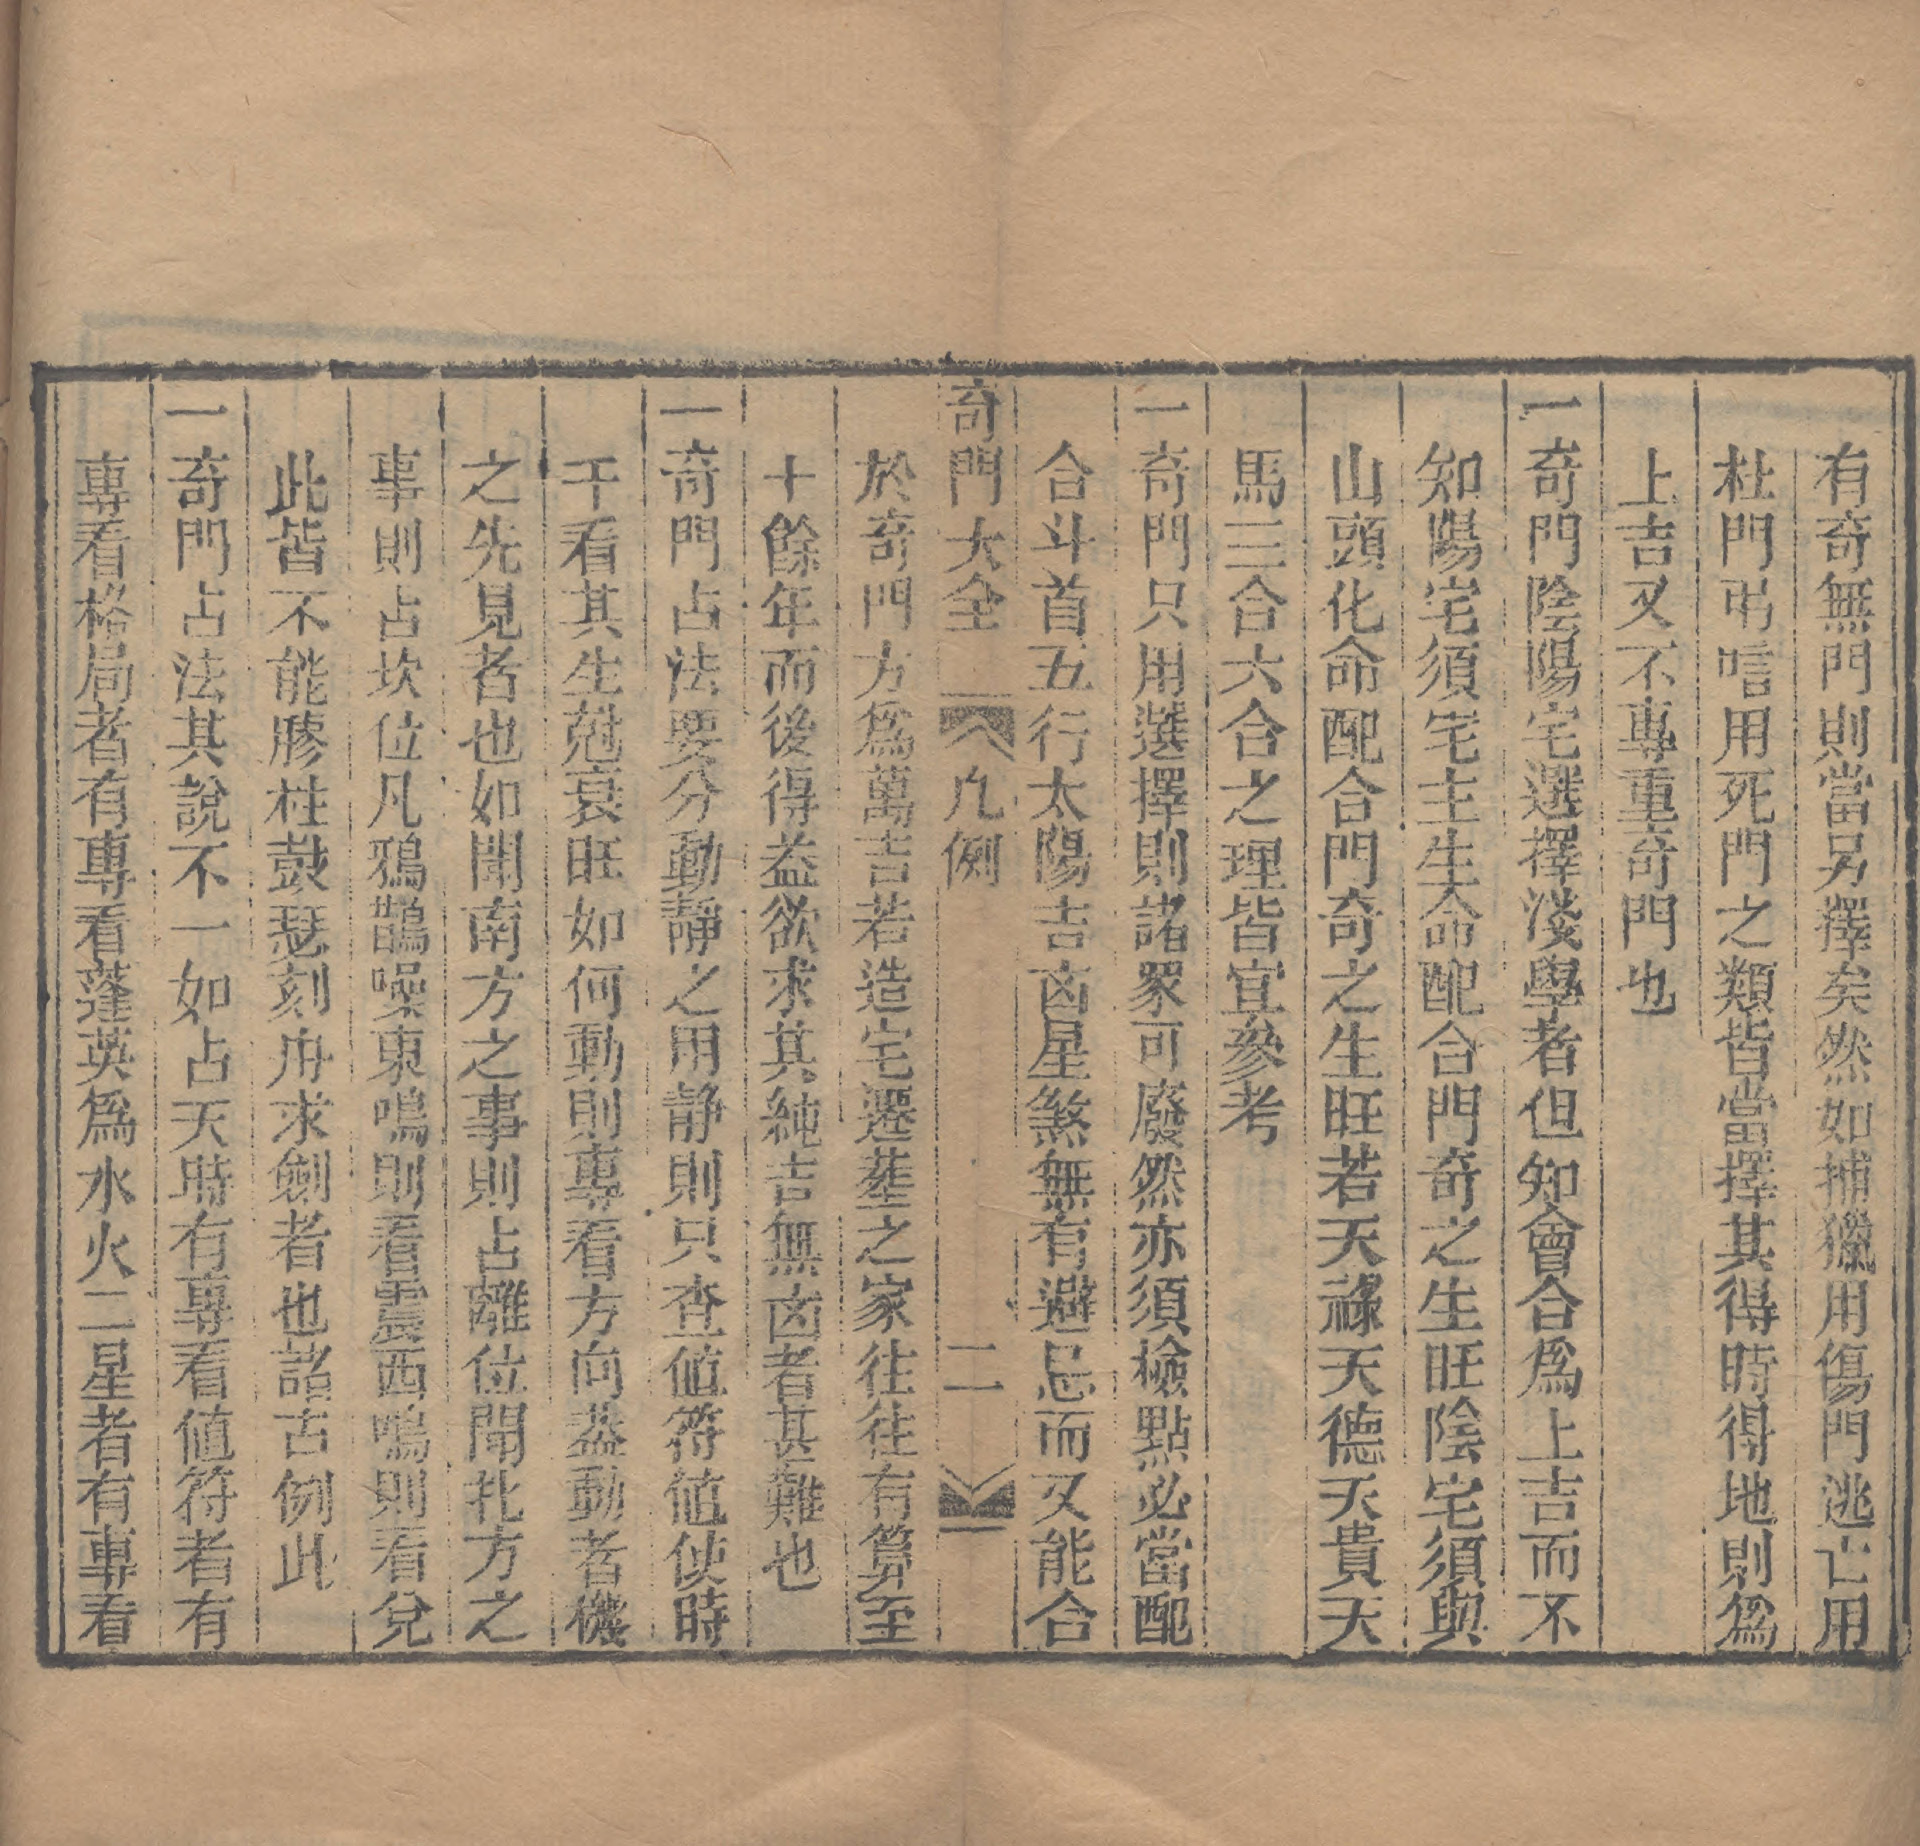 有奇無門則當另擇矣然如捕獵用傷門逃亡用
杜門弔唁用死門之類皆當擇其得時得地則爲
上吉又不專重奇門也
一奇門陰陽宅選擇淺學者但知會合爲上吉而不
知陽宅須宅主生命配合門奇之生旺陰宅須與
山頭化命配合門奇之生旺若天祿天德天貴天
馬三合六合之理皆宜參考
一奇門只用選擇則諸家可廢然亦須檢點必當配
合斗首五行太陽吉凶星煞無有避忌而又能合
奇門大全 凡例 二
於奇門方爲萬吉若造宅遷塟之家往往有算至
十餘年而後得益欲求其純吉無凶者甚難也
一奇門占法要分動靜之用静則只查値符値使時
干看其生尅衰旺如何動則專看方向葢動者機
之先見者也如聞南方之事則占離位聞北方之
事則占坎位凡鴉鵲噪東鳴則看震西鳴則看兌
此皆不能膠柱鼓瑟刻舟求劍者也諸占例此
一奇門占法其說不一如占天時有專看値符者有
專看格局者有專看蓬英爲水火二星者有專看